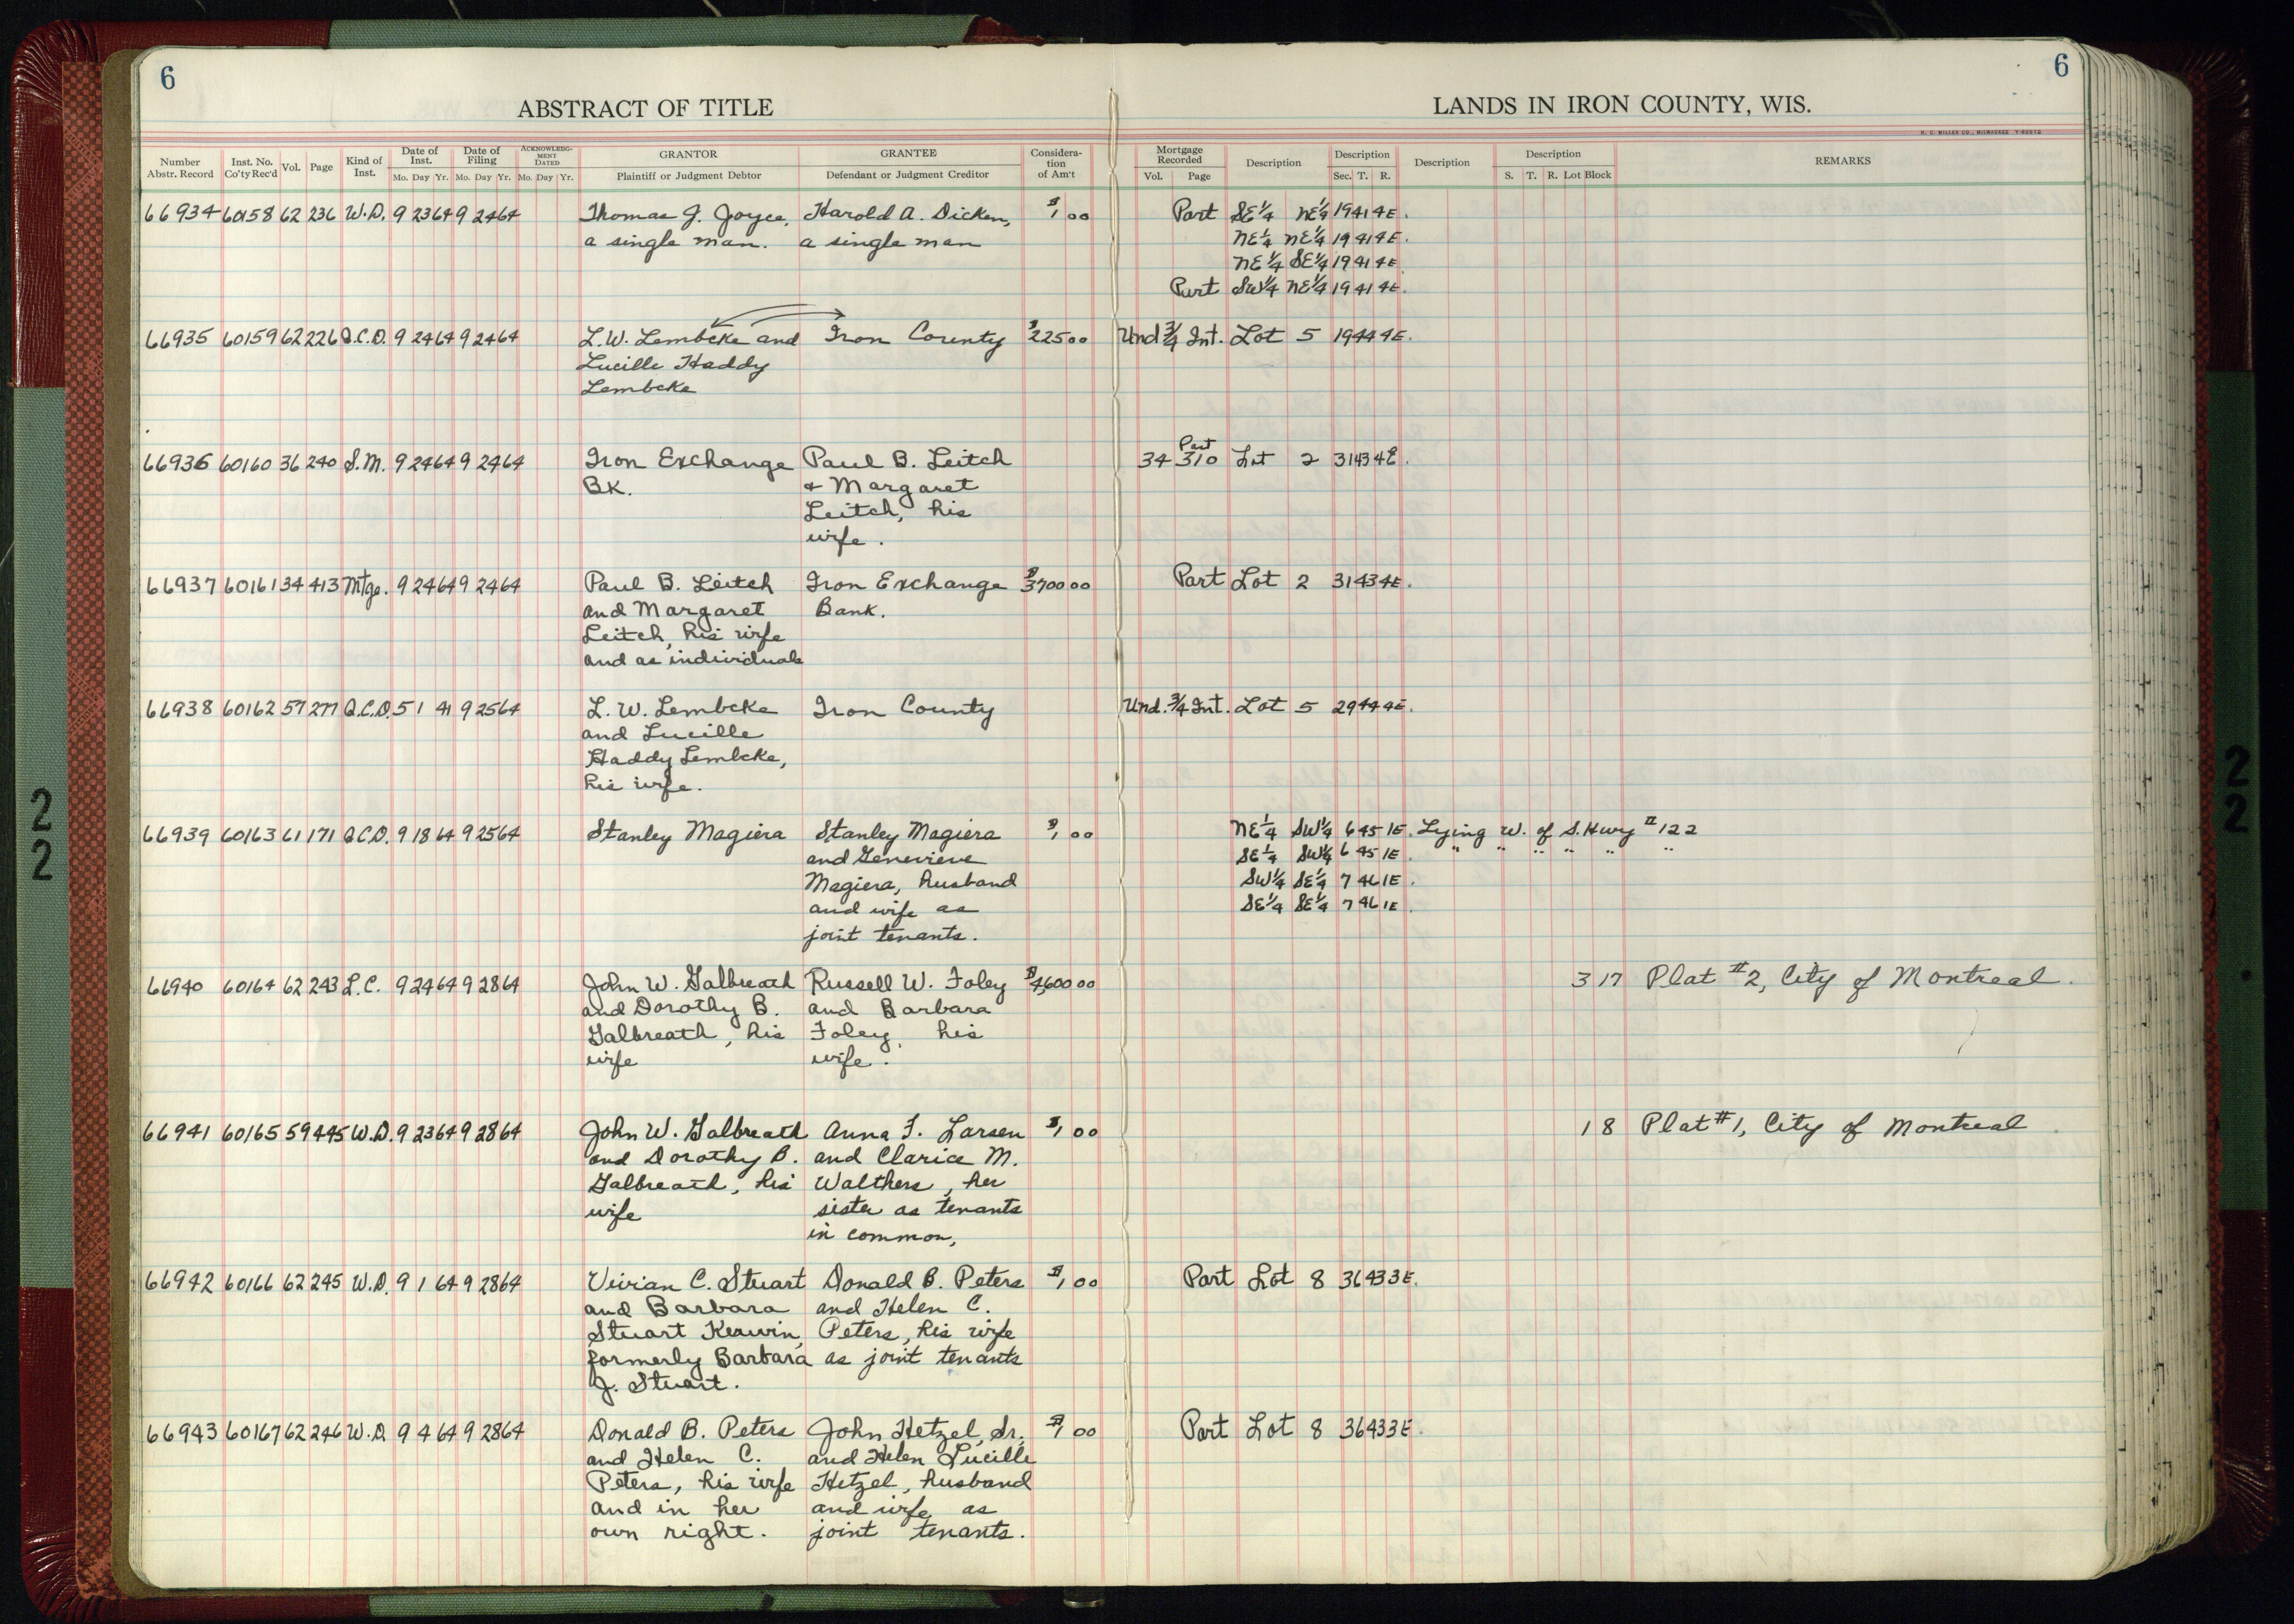 6
6
ABSTRACT OF TITLE
LANDS IN IRON COUNTY, WIS.
H. C. MILLER CO., MILWAUKEE
Number Abstr. Record Inst. No. Co'ty Rec'd Vol. Page Kind of Inst. Date of Inst. Mo. Day Yr. Date of Filing Mo. Day Yr. ACKNOWLEDGMENT DATED Mo. Day Yr. GRANTOR Plaintiff or Judgment Debtor GRANTEE Defendant or Judgment Creditor Consideration of Am't Mortgage Recorded Vol. Page Description Description Sec. T. R. Description Description S. T. R. Lot Block REMARKS
66934 60158 62 236 W.D. 9 23 64 9 24 64 Thomas J. Joyce, Harold A. Dicken, $1 00 Part SE1/4 NE1/4 19 41 4E.
a single man. a single man NE1/4 NE1/4 19 41 4E.
NE1/4 SE1/4 19 41 4E
Part SW1/4 NE1/4 19 41 4E.
66935 60159 62 226 Q.C.D. 9 24 64 9 24 64 L.W. Lembcke and Iron County $225 00 Und 3/4 Int. Lot 5 19 44 4E.
Lucille Haddy
Lembcke
66936 60160 36 240 S.M. 9 24 64 9 24 64 Iron Exchange Paul B. Leitch 34 Part 310 Lot 2 31 43 4E.
Bk. & Margaret
Leitch, his
wife.
66937 60161 34 413 Mtge. 9 24 64 9 24 64 Paul B. Leitch Iron Exchange $3700 00 Part Lot 2 31 43 4E.
and Margaret Bank.
Leitch, his wife
and as individuals
66938 60162 57 277 Q.C.D. 5 1 41 9 25 64 L. W. Lembcke Iron County Und. 3/4 Int. Lot 5 29 44 4E.
and Lucille
Haddy Lembcke,
his wife.
66939 60163 61 171 Q.C.D. 9 18 64 9 25 64 Stanley Magiera Stanley Magiera $1 00 NE1/4 SW1/4 6 45 1E. Lying W. of S. Hwy #122
and Genevieve SE1/4 SW1/4 6 45 1E. " " " " " "
Magiera, husband SW1/4 SE1/4 7 46 1E.
and wife as SE1/4 SE1/4 7 46 1E.
joint tenants.
66940 60164 62 243 L.C. 9 24 64 9 28 64 John W. Galbreath Russell W. Foley $4,600 00 3 17 Plat #2, City of Montreal.
and Dorothy B. and Barbara
Galbreath, his Foley, his
wife wife.
66941 60165 59 445 W.D. 9 23 64 9 28 64 John W. Galbreath Anna F. Larsen $1 00 1 8 Plat #1, City of Montreal.
and Dorothy B. and Clarice M.
Galbreath, his Walthers, her
wife sister as tenants
in common,
66942 60166 62 245 W.D. 9 1 64 9 28 64 Vivian C. Stuart Donald B. Peters $1 00 Part Lot 8 36 43 3E.
and Barbara and Helen C.
Stuart Kerwin, Peters, his wife
formerly Barbara as joint tenants
J. Stuart.
66943 60167 62 246 W.D. 9 4 64 9 28 64 Donald B. Peters John Hetzel, Sr. $1 00 Part Lot 8 36 43 3E.
and Helen C. and Helen Lucille
Peters, his wife Hetzel, husband
and in her and wife as
own right. joint tenants.
22
22